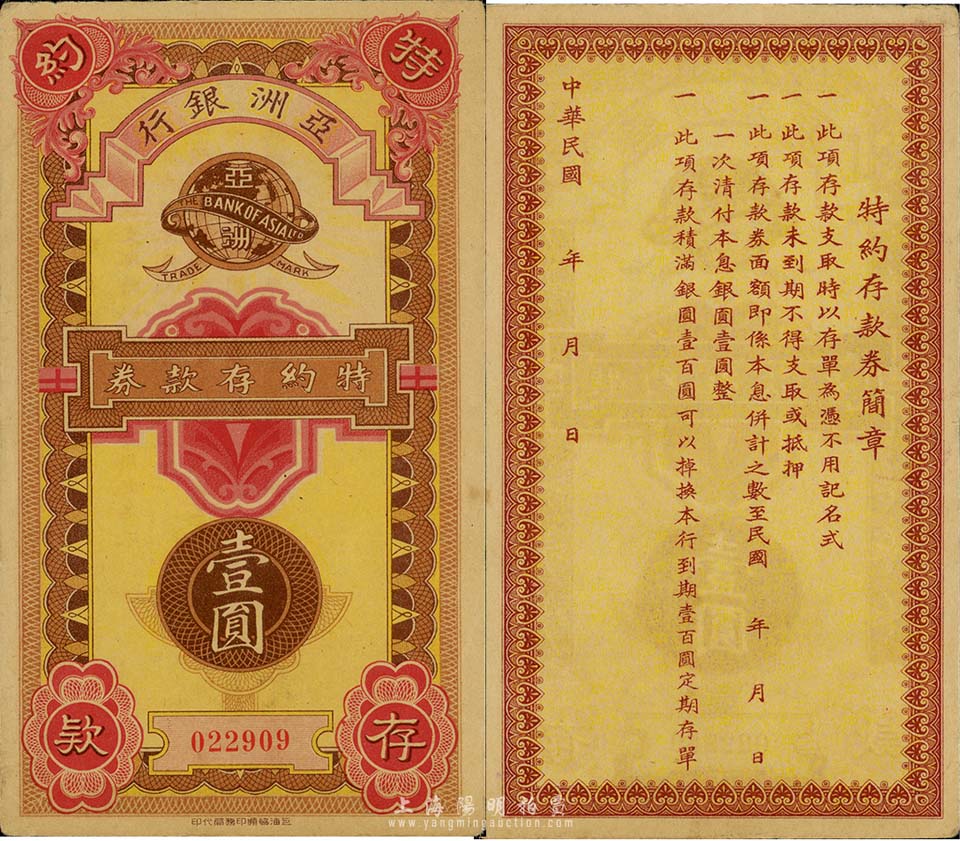 特約
亞洲銀行
亞洲
THE BANK OF ASIA LTD.
TRADE MARK
特約存款券
壹圓
存款
022909
特約存款券簡章
一 此項存款支取時以存單為憑不用記名式
一 此項存款未到期不得支取或抵押
一 此項存款券面額即係本息併計之數至民國 年 月 日
一次清付本息銀圓壹圓整
一 此項存款積滿銀圓壹百圓可以掉換本行到期壹百圓定期存單
中華民國 年 月 日
上海陽明拍賣
www.yangmingauction.com